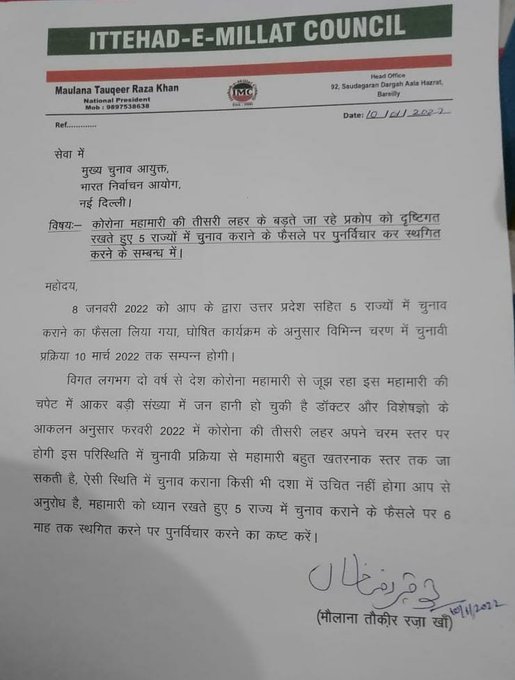 ITTEHAD-E-MILLAT COUNCIL
Maulana Tauqeer Raza Khan
National President
Mob : 9897538638
IMC
Head Office
92, Saudagaran Dargah Aala Hazrat,
Bareilly
Ref.............
Date: 10/01/2022
सेवा में
मुख्य चुनाव आयुक्त,
भारत निर्वाचन आयोग,
नई दिल्ली।
विषयः– कोरोना महामारी की तीसरी लहर के बड़ते जा रहे प्रकोप को दृष्टिगत
रखते हुए 5 राज्यों में चुनाव कराने के फैसले पर पुनर्विचार कर स्थगित
करने के सम्बन्ध में।
महोदय,
8 जनवरी 2022 को आप के द्वारा उत्तर प्रदेश सहित 5 राज्यों में चुनाव
कराने का फैसला लिया गया, घोषित कार्यक्रम के अनुसार विभिन्न चरण में चुनावी
प्रक्रिया 10 मार्च 2022 तक सम्पन होगी।
विगत लगभग दो वर्ष से देश कोरोना महामारी से जूझ रहा इस महामारी की
चपेट में आकर बड़ी संख्या में जन हानी हो चुकी है डॉक्टर और विशेषज्ञो के
आकलन अनुसार फरवरी 2022 में कोरोना की तीसरी लहर अपने चरम स्तर पर
होगी इस परिस्थिति में चुनावी प्रक्रिया से महामारी बहुत खतरनाक स्तर तक जा
सकती है, ऐसी स्थिति में चुनाव कराना किसी भी दशा में उचित नहीं होगा आप से
अनुरोध है, महामारी को ध्यान रखते हुए 5 राज्य में चुनाव कराने के फैसले पर 6
माह तक स्थगित करने पर पुनर्विचार करने का कष्ट करें।
10/1/2022
(मौलाना तौकीर रज़ा खाँ)